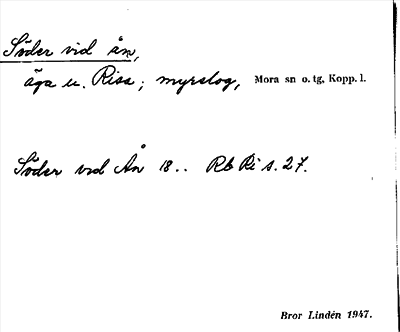 Söder vid ån,
äga u. Risa; myrslog, Mora sn o. tg, Kopp. l.
Söder vid Ån 18.. Rb Ri s. 27.
Bror Lindén 1947.